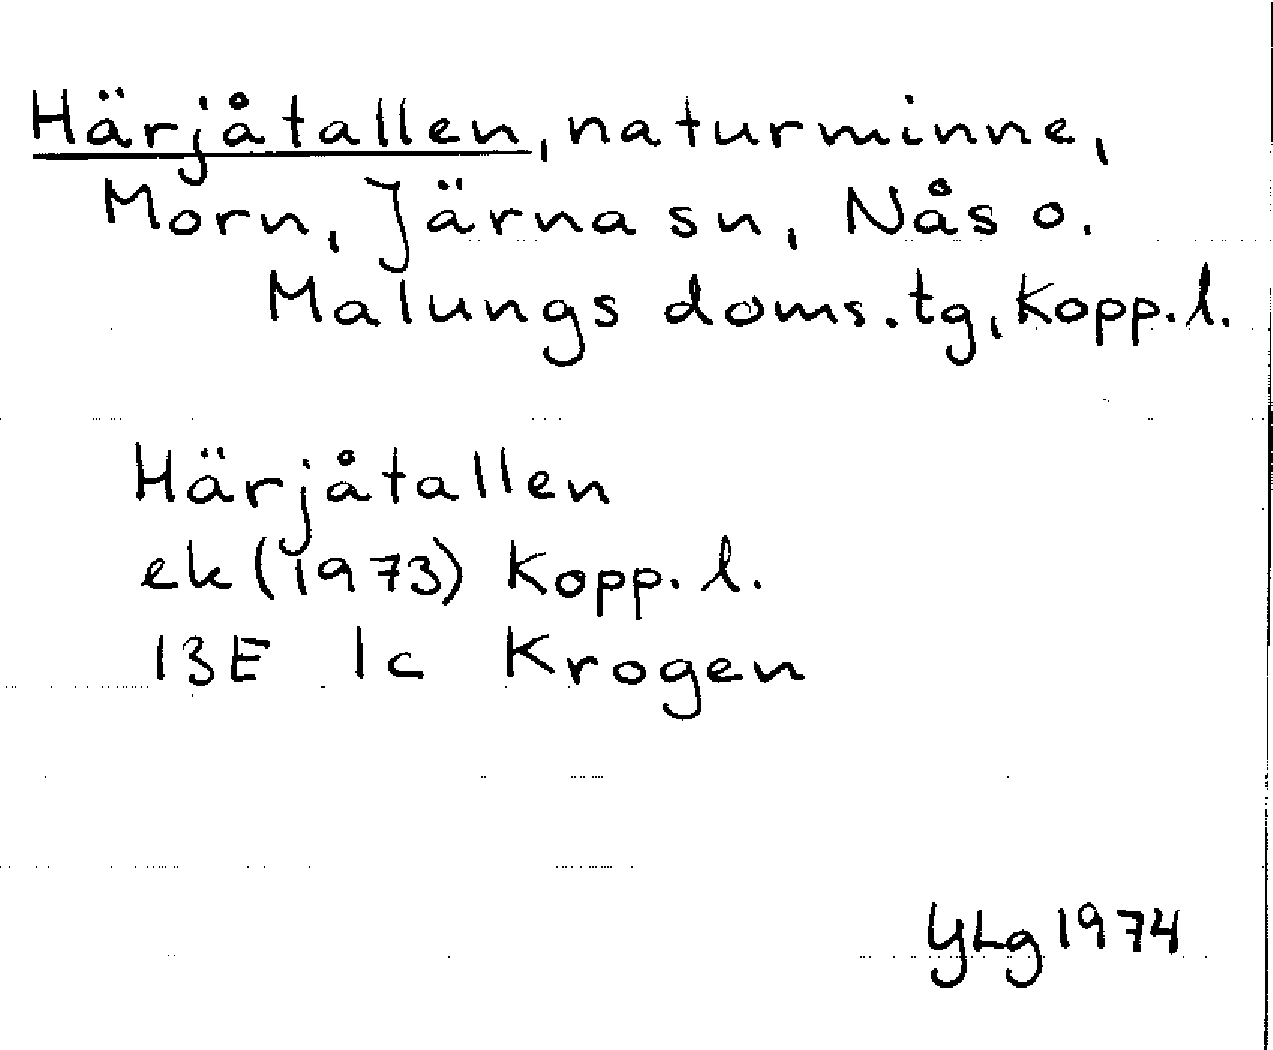 Härjåtallen, naturminne,
Morn, Järna sn, Nås o.
Malungs doms.tg, Kopp. l.
Härjåtallen
ek (1973) Kopp. l.
13E 1c Krogen
YLg 1974